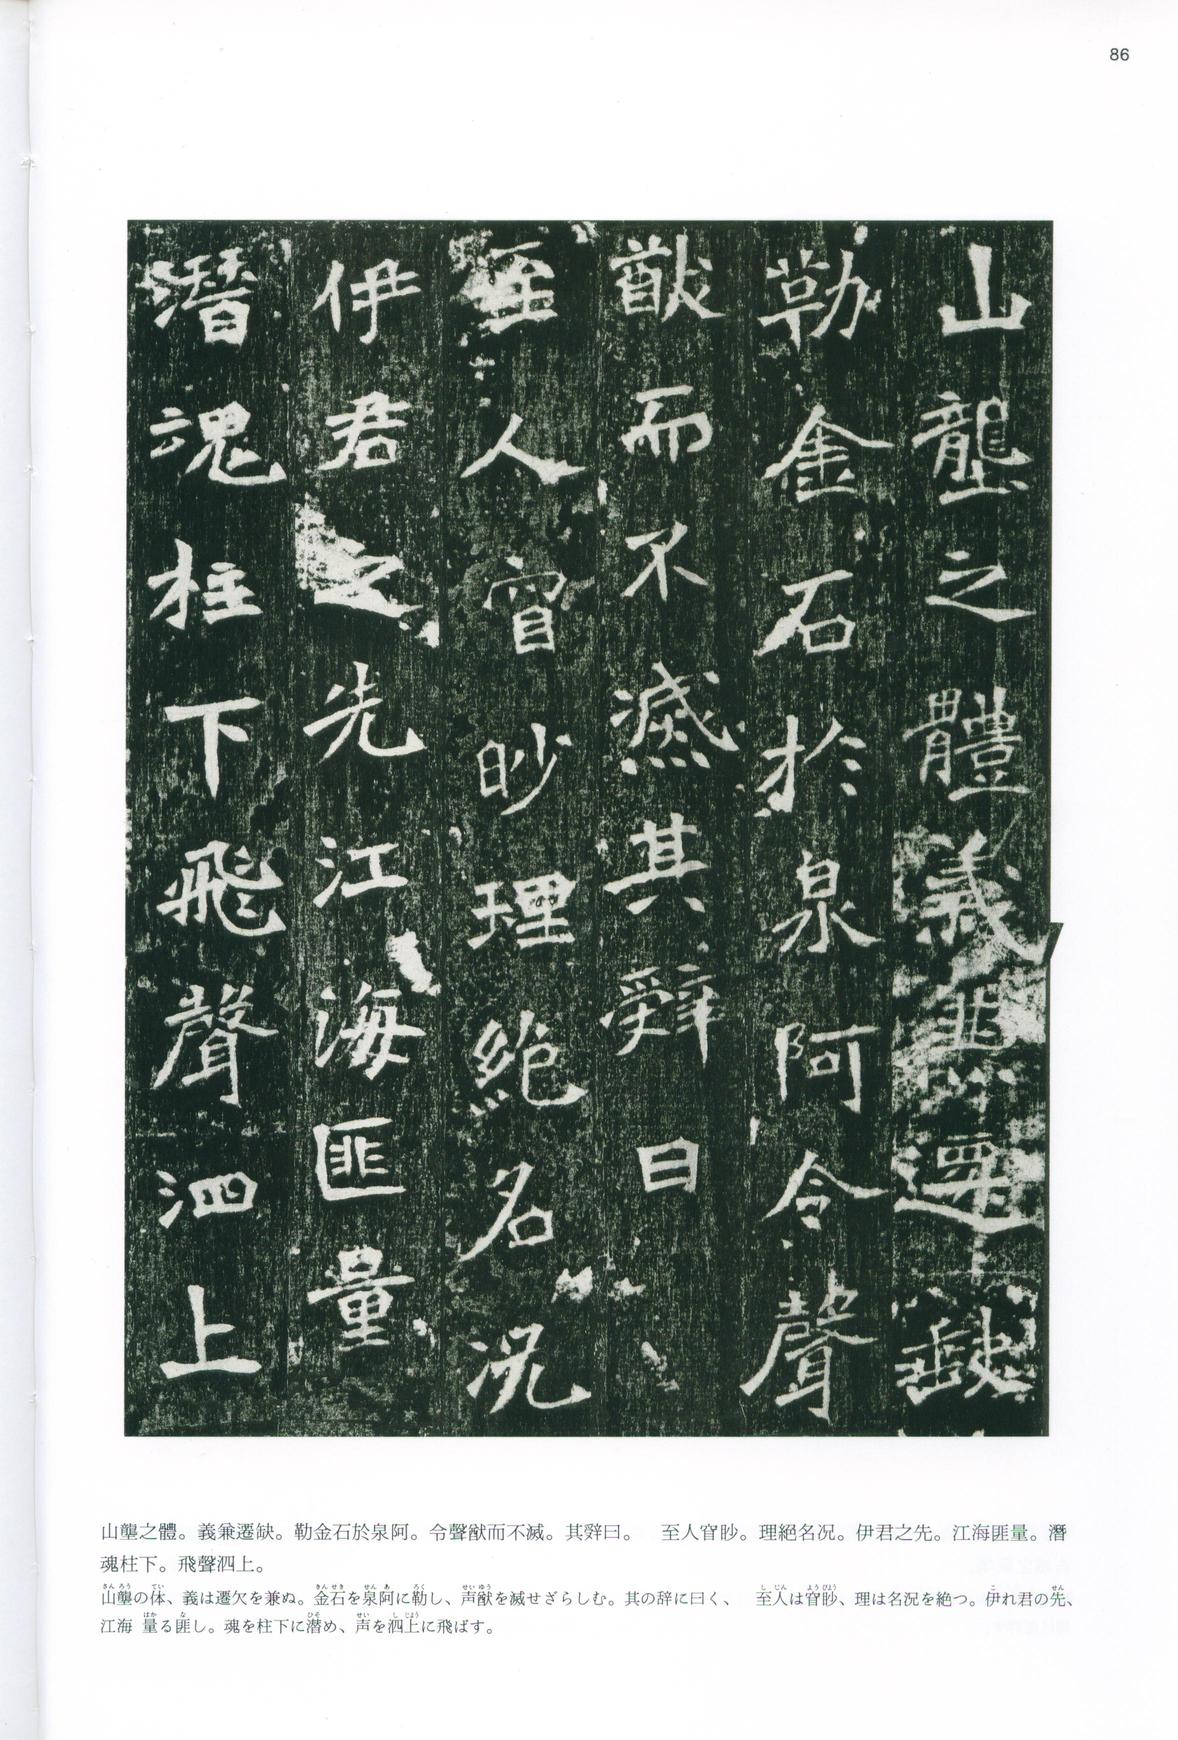 86
山壟之體義兼遷缺
勒金石於泉阿令聲
猷而不滅其辤曰
至人窅眇理絕名况
伊君之先江海匪量
潛魂柱下飛聲泗上
山壟之體。義兼遷缺。勒金石於泉阿。令聲猷而不滅。其辤曰。　至人窅眇。理絕名况。伊君之先。江海匪量。潛
魂柱下。飛聲泗上。
山壟の体、義は遷欠を兼ぬ。金石を泉阿に勒し、声猷を滅せざらしむ。其の辞に曰く、　至人は窅眇、理は名況を絶つ。伊れ君の先、
江海 量る匪し。魂を柱下に潜め、声を泗上に飛ばす。